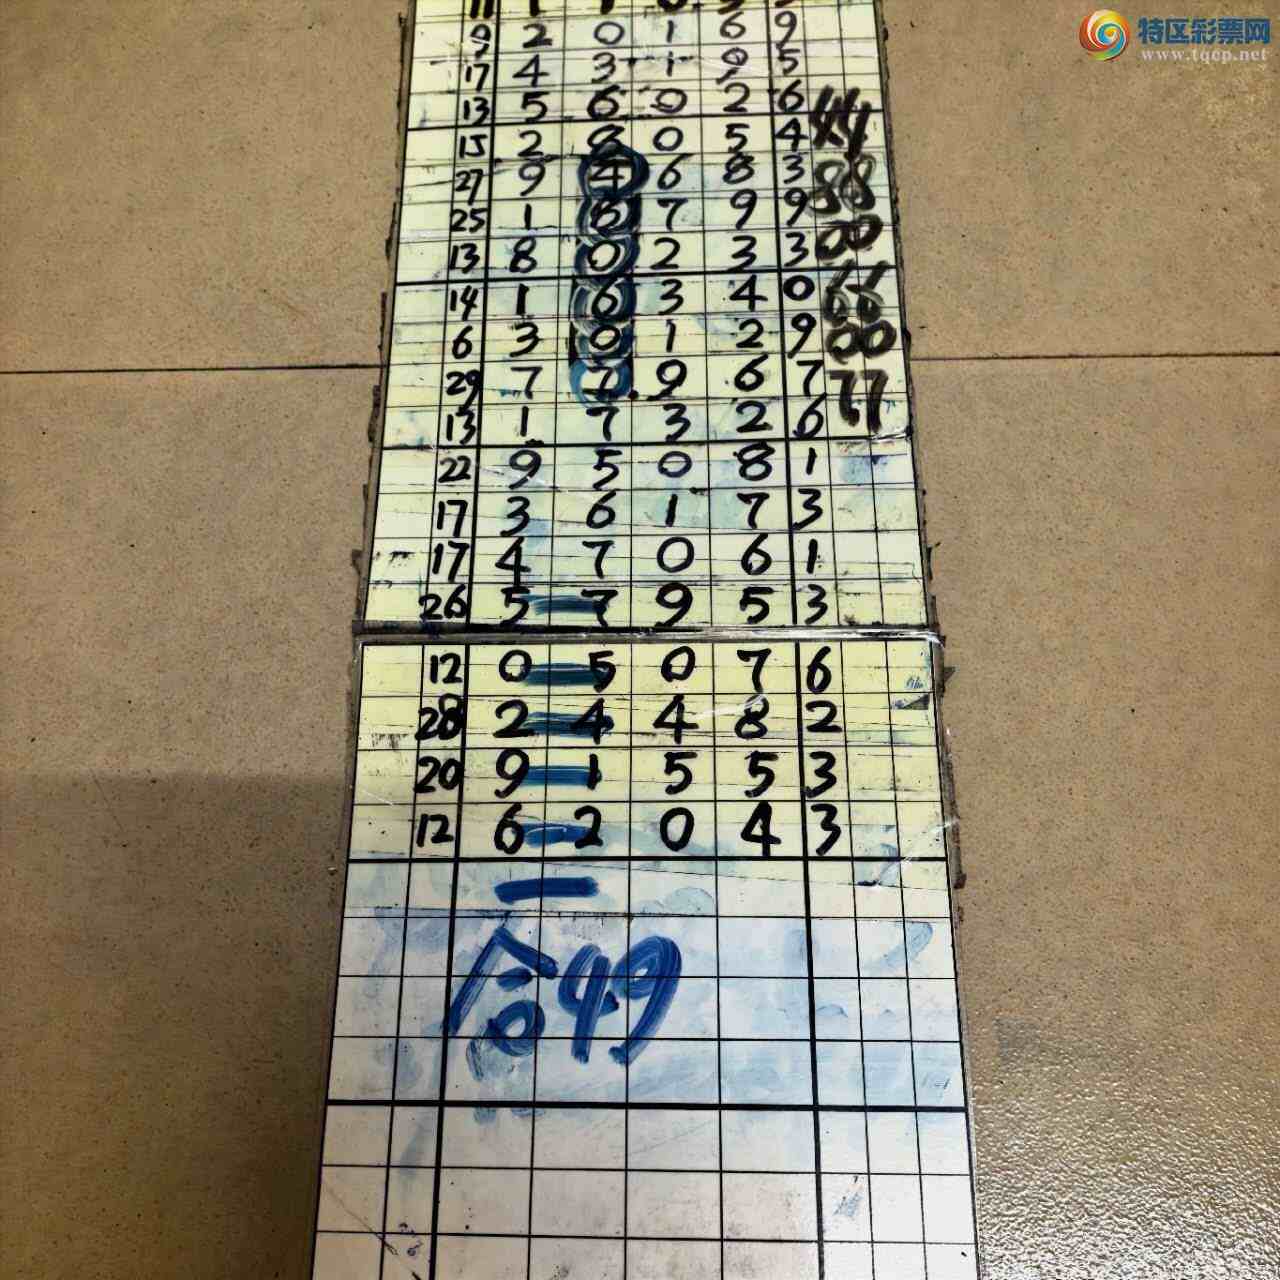 特区彩票网
www.tqcp.net
9 2 0 1 6 9
17 4 3 1 9 5
13 5 6 0 2 6
15 2 8 0 5 4 44
27 9 4 6 8 3 88
25 1 8 7 9 9
13 8 0 2 3 3 00
14 1 6 3 4 0 66
6 3 0 1 2 9 00
29 7 7 9 6 7 77
13 1 7 3 2 6
22 9 5 0 8 1
17 3 6 1 7 3
17 4 7 0 6 1
26 5 7 9 5 3
12 0 5 0 7 6
28 2 4 4 8 2
20 9 1 5 5 3
12 6 2 0 4 3
合49